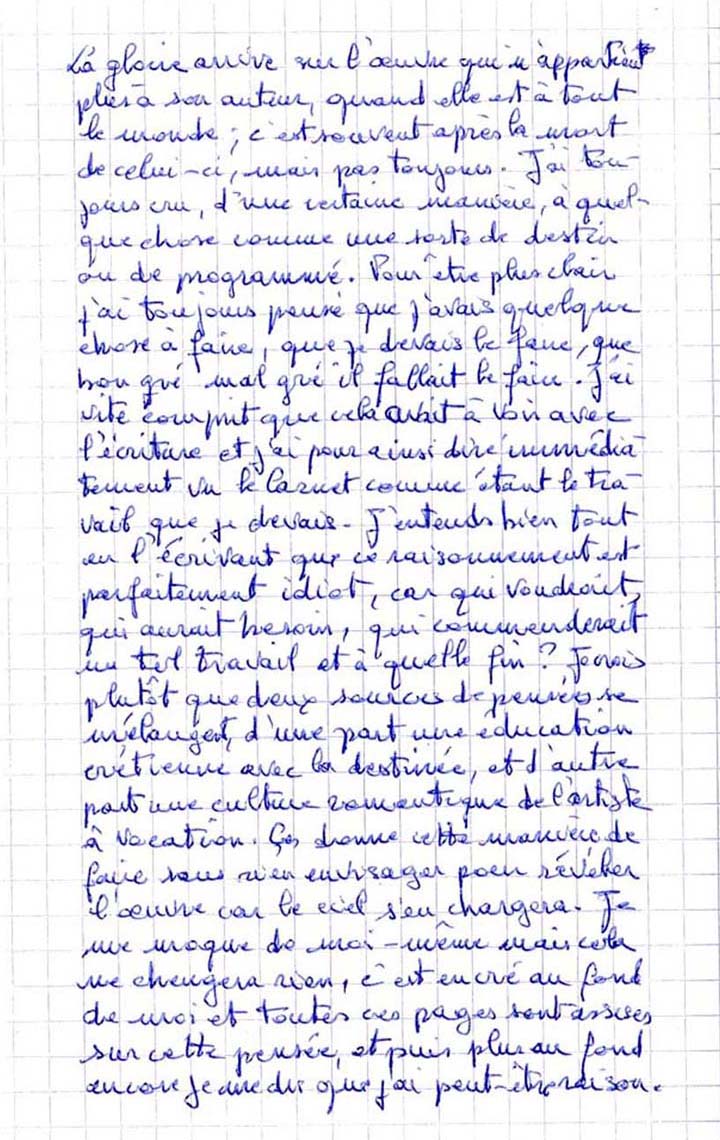 La gloire arrive sur l'œuvre qui n'appartient
plus à son auteur, quand elle est à tout
le monde ; c'est souvent après la mort
de celui-ci, mais pas toujours. J'ai tou-
jours cru, d'une certaine manière, à quel-
que chose comme une sorte de destin
ou de programmé. Pour être plus clair
j'ai toujours pensé que j'avais quelque
chose à faire, que je devais le faire, que
bon gré mal gré il fallait le faire. J'ai
vite comprit que cela avait à voir avec
l'écriture et j'ai pour ainsi dire immédia-
tement vu le Carnet comme étant le tra-
vail que je devais. J'entends bien tout
en l'écrivant que ce raisonnement est
parfaitement idiot, car qui voudrait,
qui aurait besoin, qui commenderait
un tel travail et à quelle fin ? Je crois
plutôt que deux sources de pensées se
mélangent, d'une part une éducation
crétienne avec la destinée, et d'autre
part une culture romantique de l'artiste
à vocation. Ça donne cette manière de
faire sans rien envisager pour révéler
l'œuvre car le ciel s'en chargera. Je
me moque de moi-même mais cela
ne changera rien, c'est encré au fond
de moi et toutes ces pages sont assises
sur cette pensée, et puis plus au fond
encore je me dis que j'ai peut-être raison.